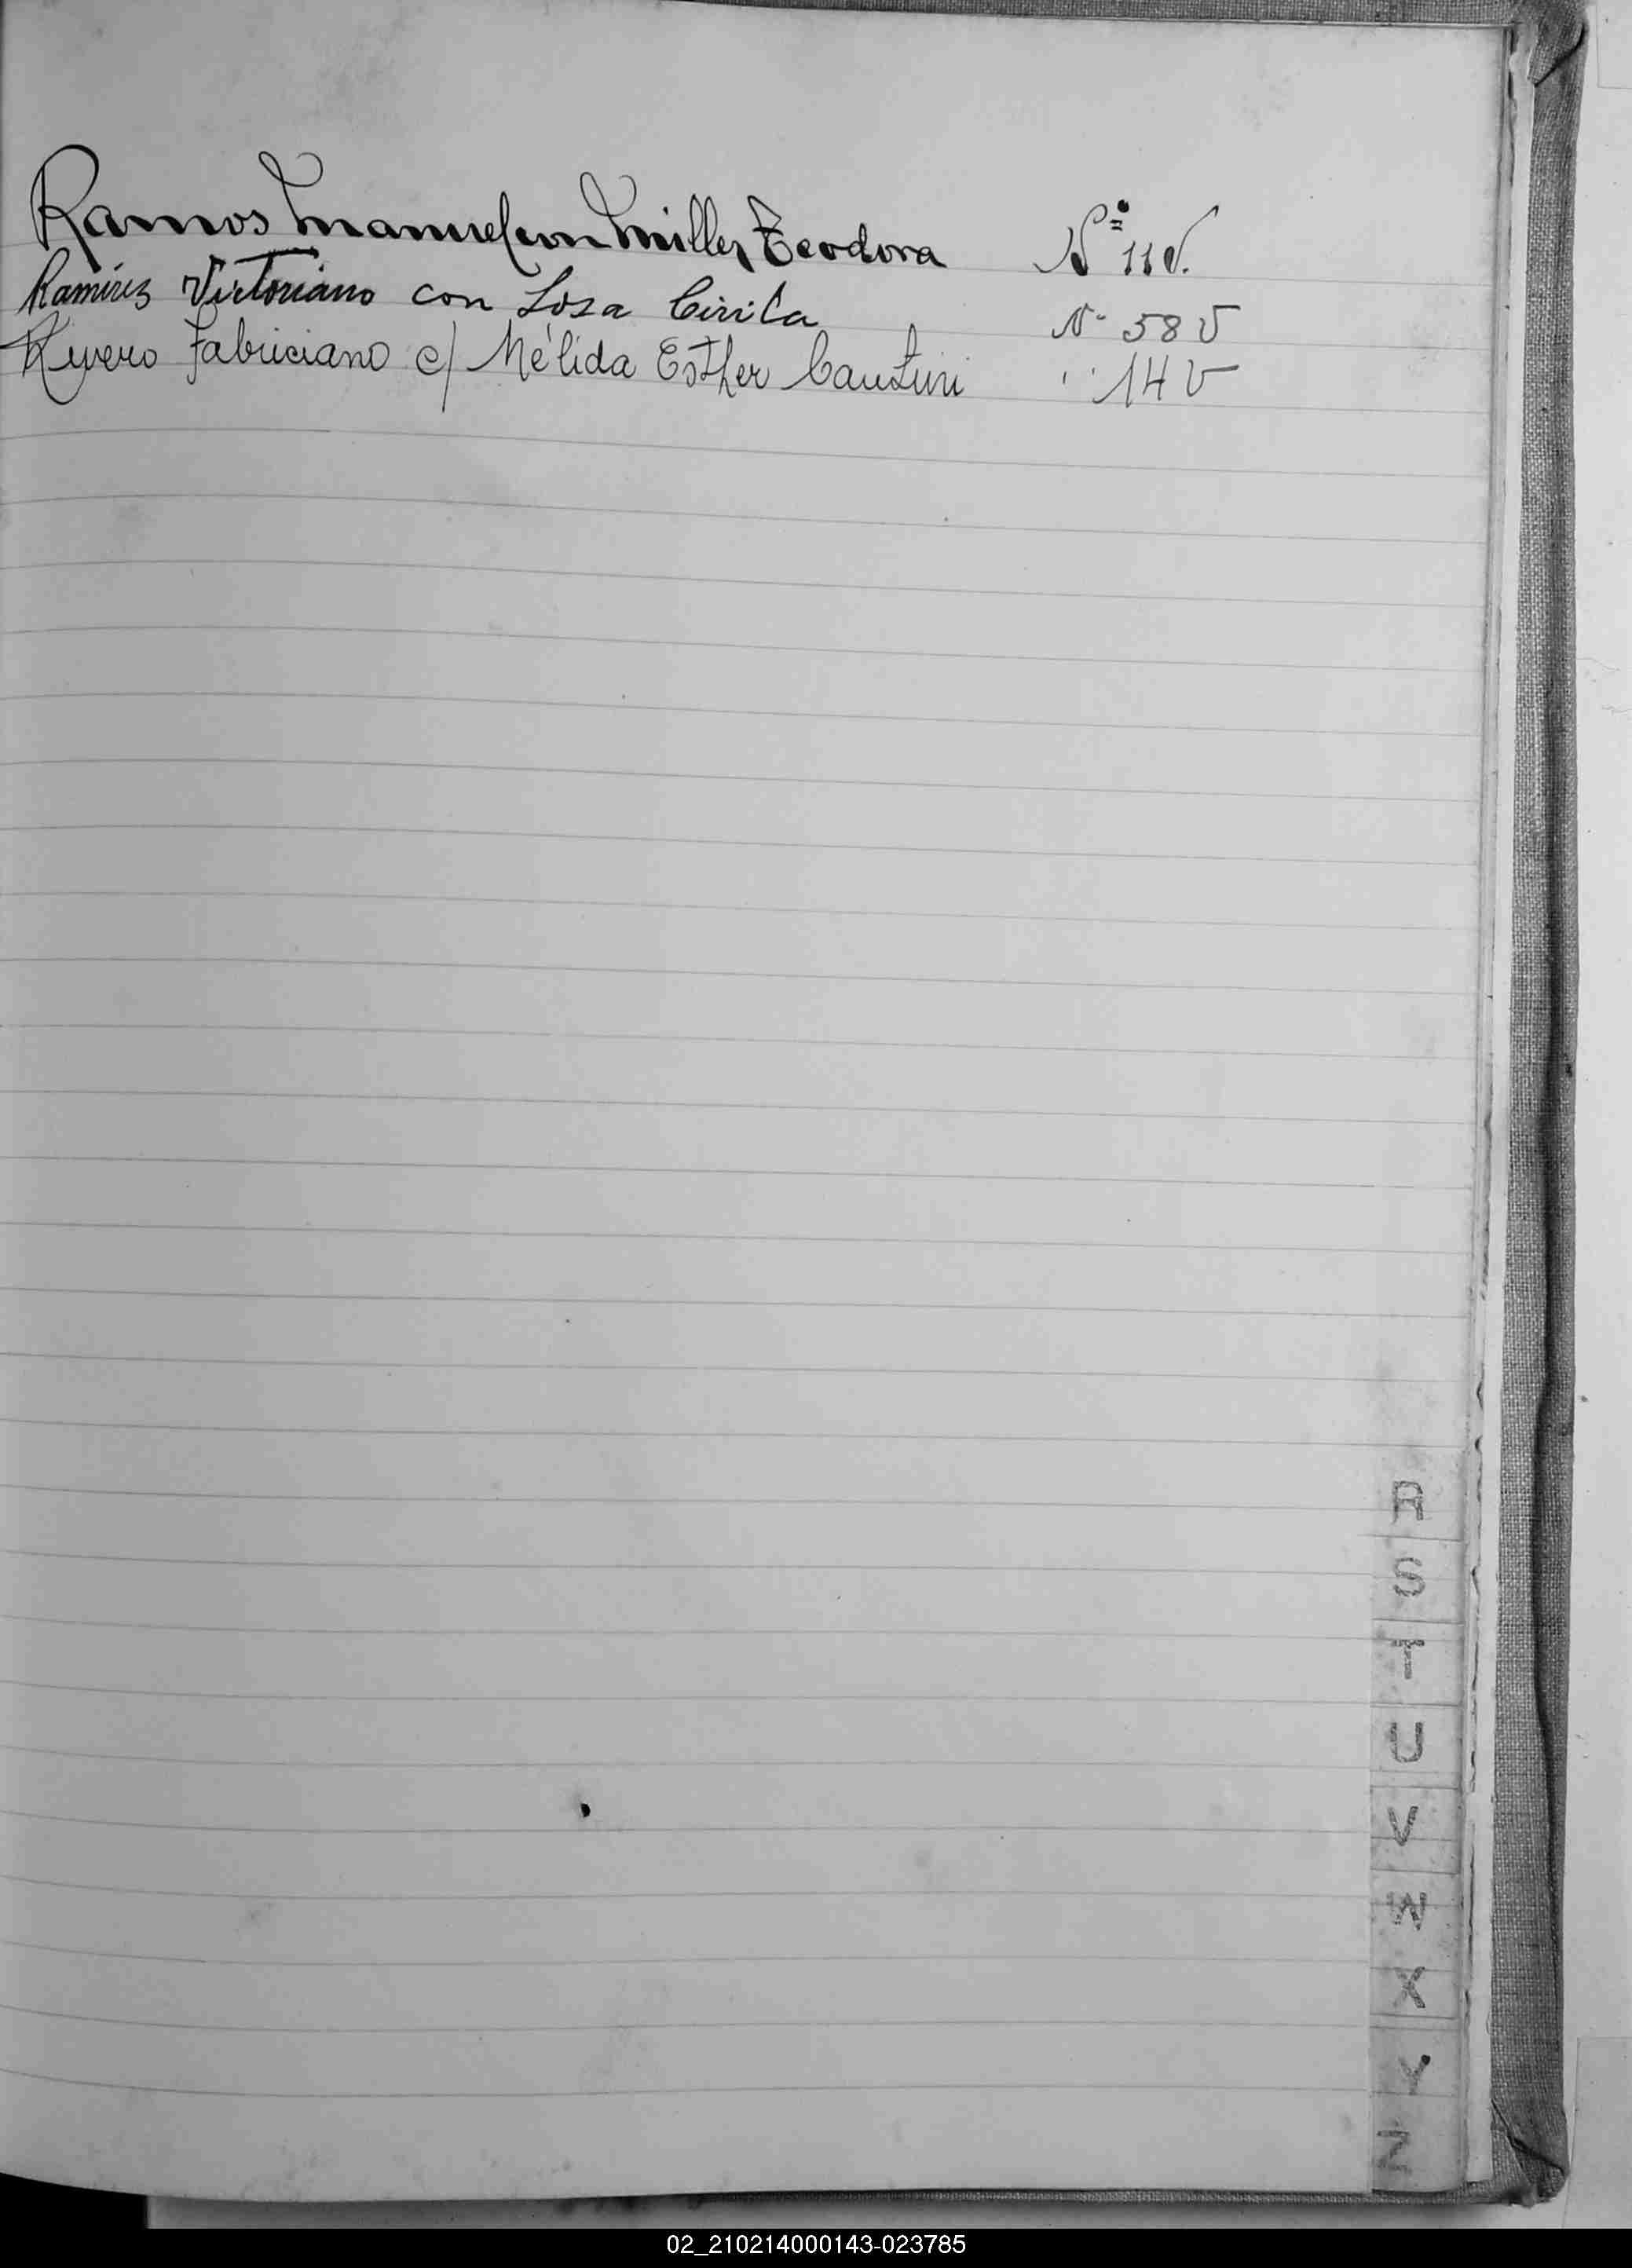 Ramos Manuel con Miller Teodora Nº 11 V.
Ramírez Victoriano con Sosa Cirila Nº 58 V
Rivero Fabriciano c/ Nélida Esther " 14 V
R
S
T
U
V
W
X
Y
Z
02_210214000143-023785